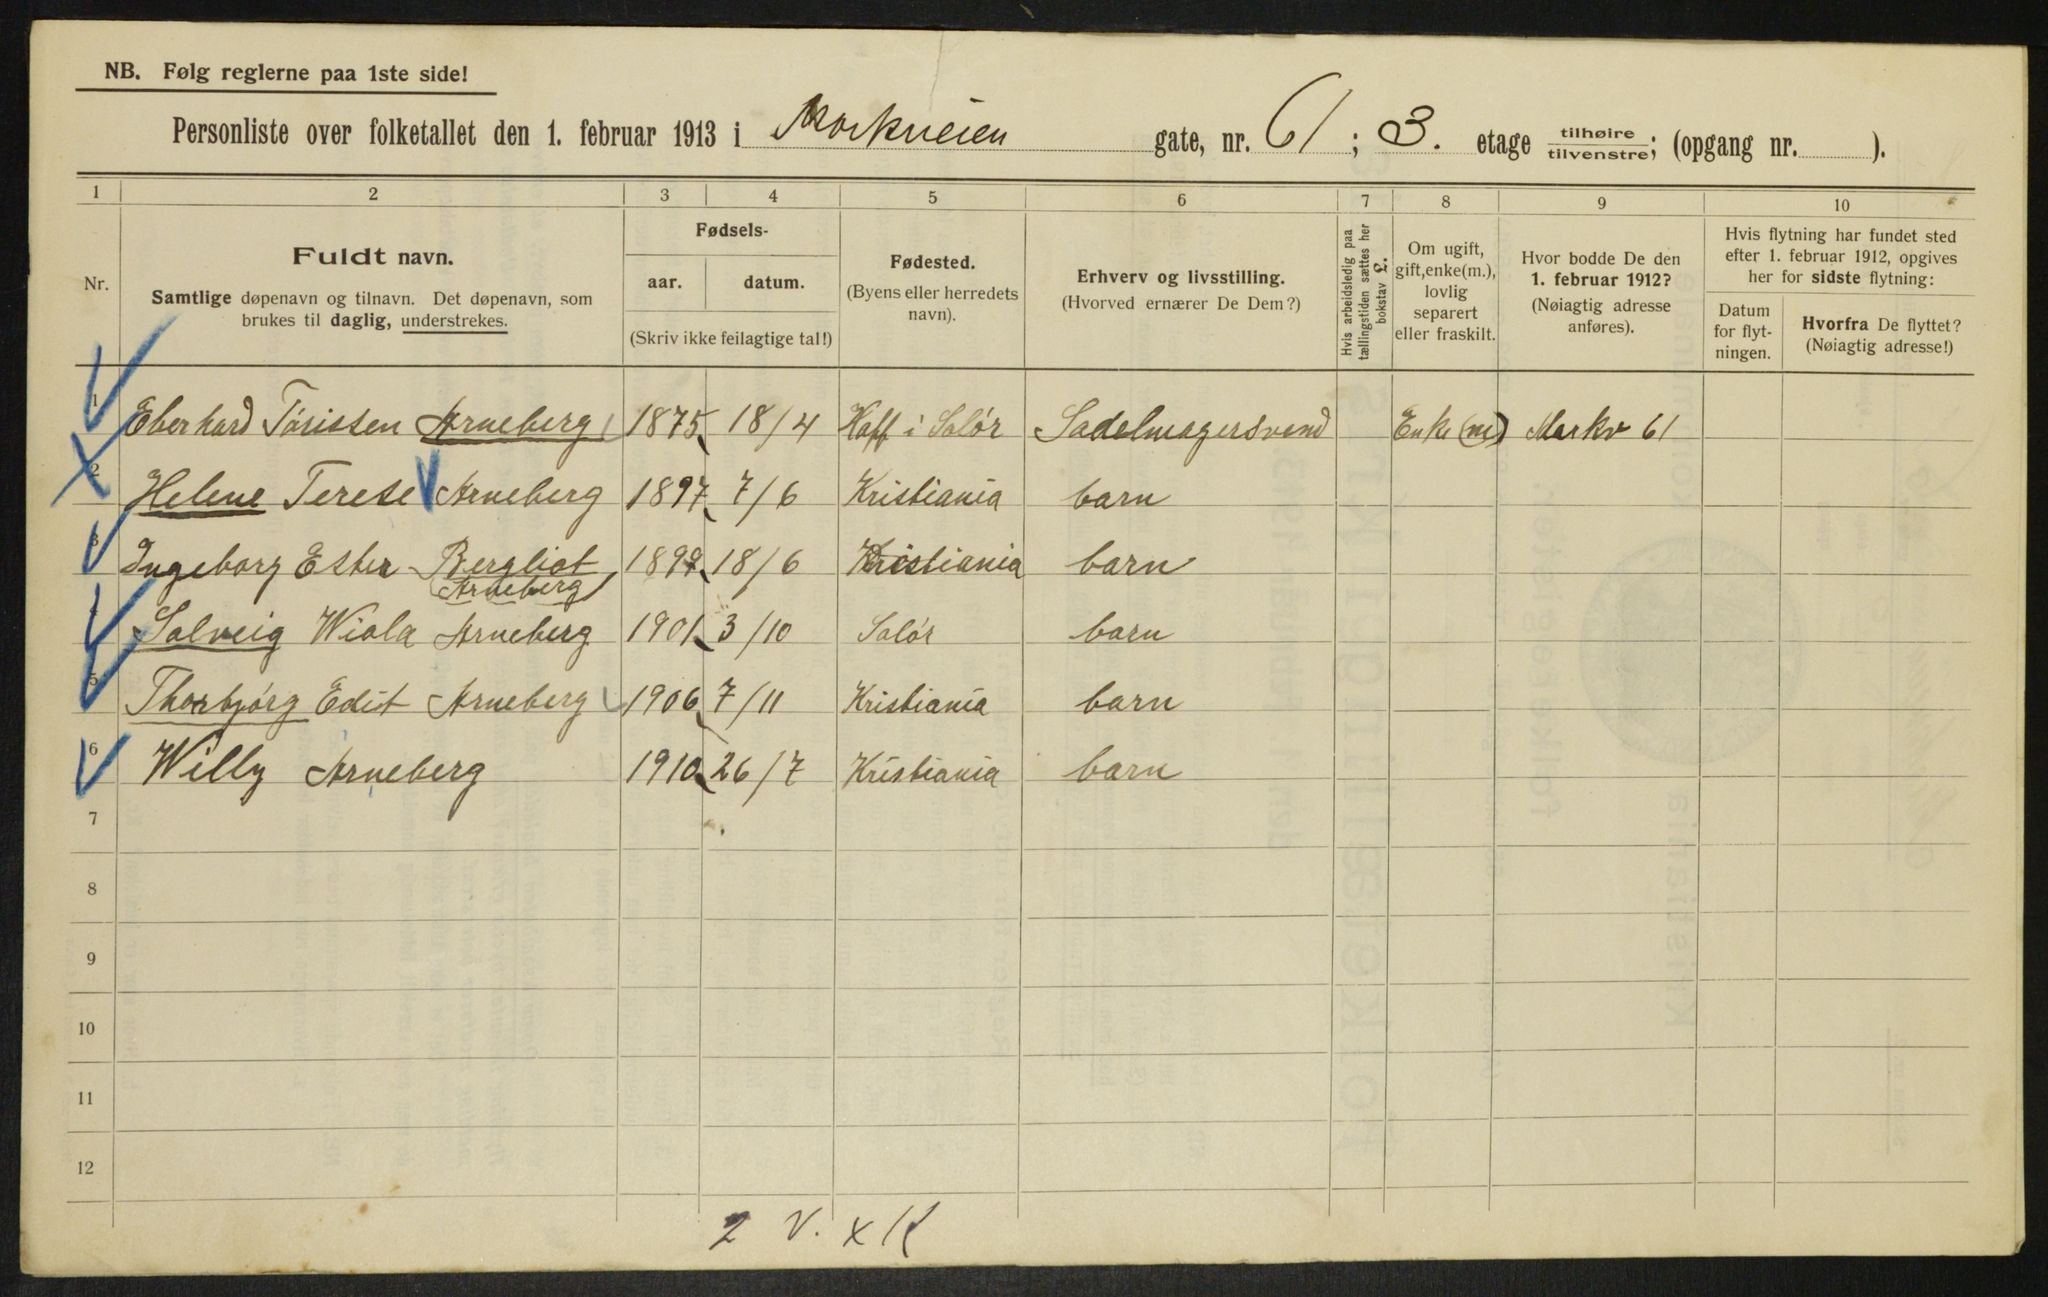 NB. Følg reglerne paa 1ste side!
Personliste over folketallet den 1. februar 1913 i Markveien gate, nr. 61; 3. etage tilhøire / tilvenstre; (opgang nr. ).
1 2 3 4 5 6 7 8 9 10
Nr.
Fuldt navn.
Samtlige døpenavn og tilnavn. Det døpenavn, som
brukes til daglig, understrekes.
Fødsels-
aar. datum.
(Skriv ikke feilagtige tal!)
Fødested.
(Byens eller herredets
navn).
Erhverv og livsstilling.
(Hvorved ernærer De Dem?)
Hvis arbeidsledig paa
tællingstiden sættes her
bokstav £.
Om ugift,
gift, enke(m.),
lovlig
separert
eller fraskilt.
Hvor bodde De den
1. februar 1912?
(Nøiagtig adresse
anføres).
Hvis flytning har fundet sted
efter 1. februar 1912, opgives
her for sidste flytning:
Datum
for flyt-
ningen.
Hvorfra De flyttet?
(Nøiagtig adresse!)
1 Eberhard Arneberg 1875 18/4 Hoff i Solør Sadelmagersvend Enke(m) Markv 61
2 Helene Terese Arneberg 1897 7/6 Kristiania barn
3 Ingeborg Ester Bergliot 18/6 Kristiania barn
Arneberg
4 Solveig Wiola Arneberg 1901 3/10 Solør barn
5 Thorbjørg Edit Arneberg 1906 7/11 Kristiania barn
6 Willy Arneberg 1910 26/7 Kristiania barn
7
8
9
10
11
12
2 v. x K